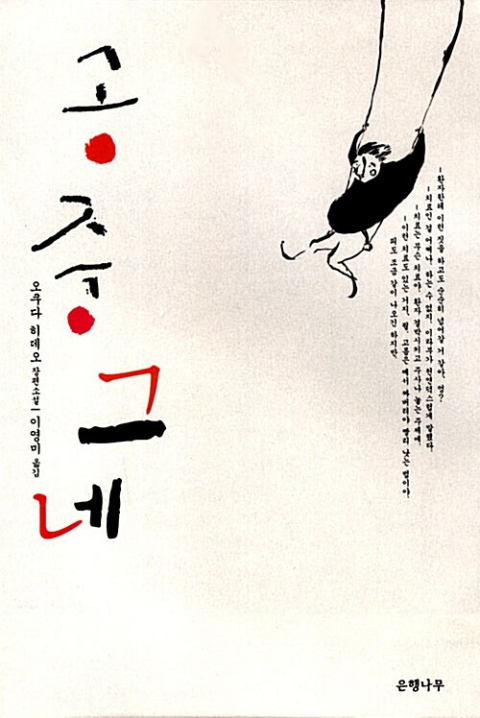 공중그네
오쿠다 히데오 장편소설 | 이영미 옮김
-환자한테 이런 짓을 하고도 순순히 넘어갈 거 같아, 엉?
-치료인 걸 어쩌나. 하는 수 없지. 이라부가 천연덕스럽게 말했다.
-치료는 무슨 치료야. 환자 결박시키고 주사나 놓는 주제에.
-이런 치료도 있는 거지, 뭘. 고름은 째서 짜버려야 빨리 낫는 법이야.
피도 조금 같이 나오긴 하지만.
은행나무